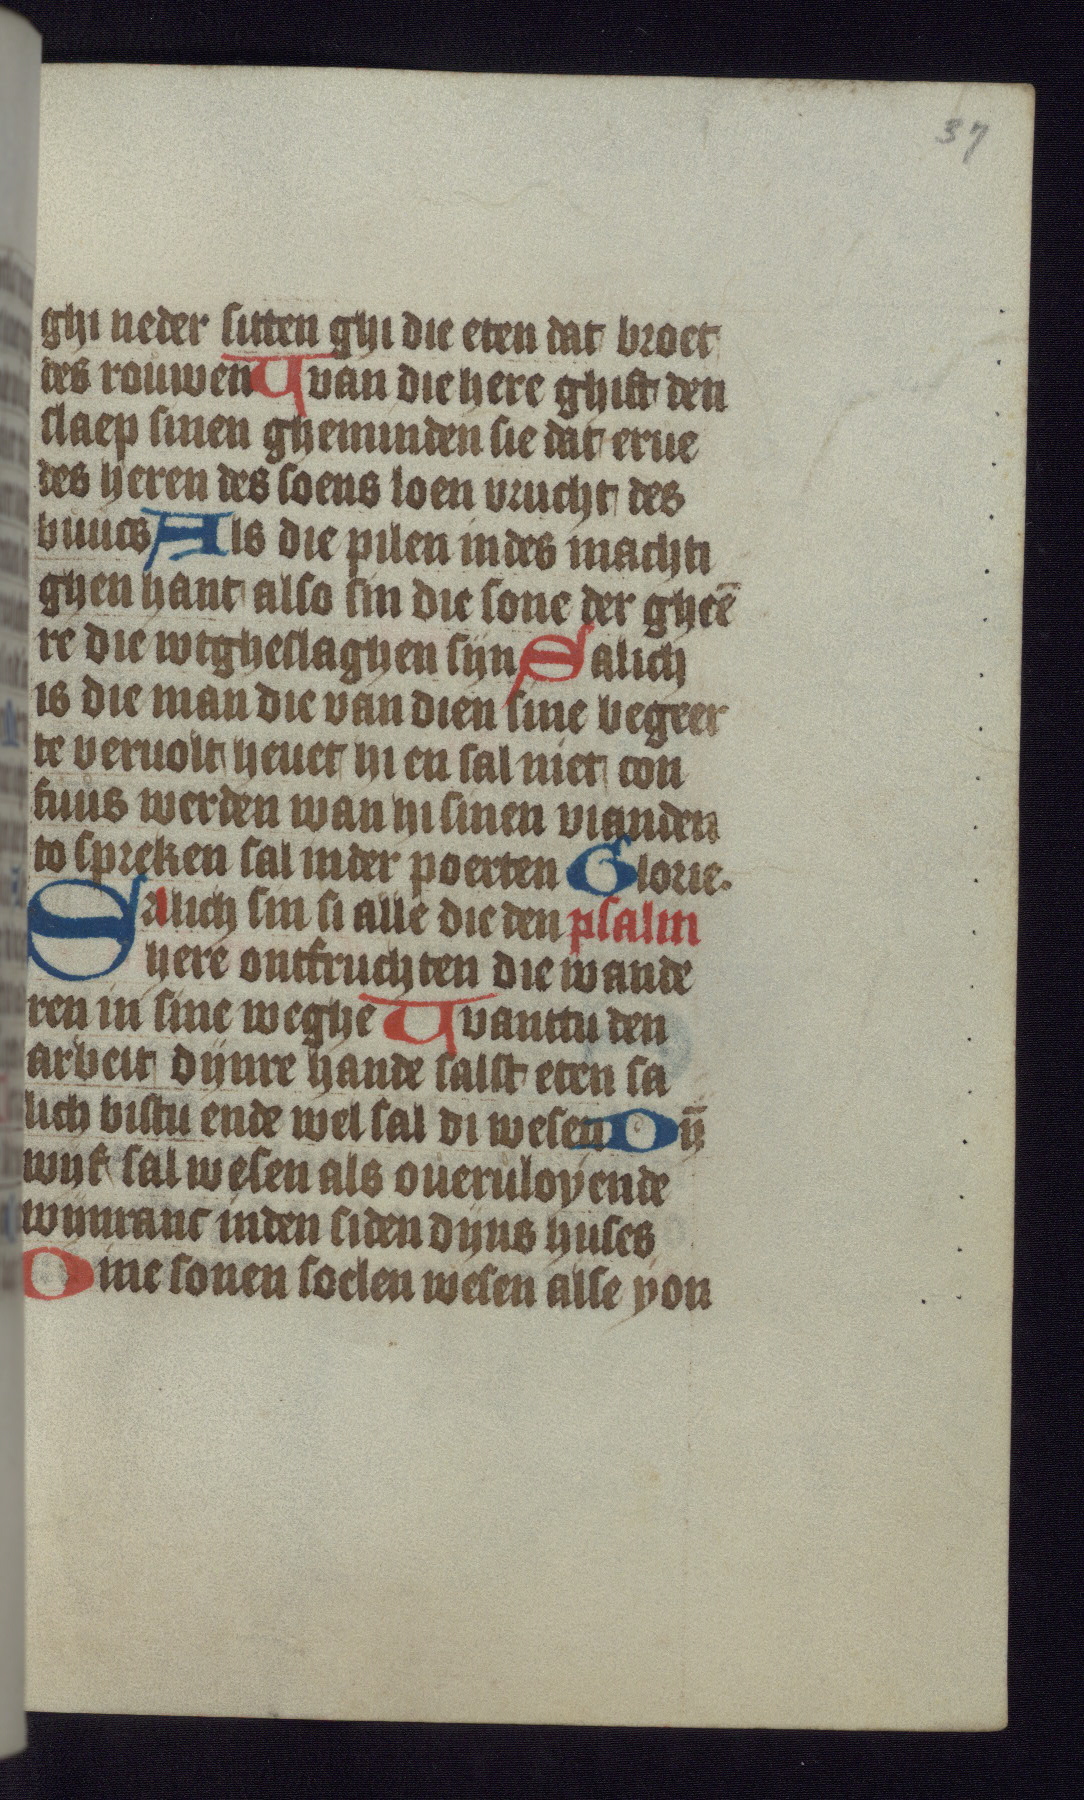 37
ghi neder sitten ghi die eten dat broet
des rouwen Wan die here ghift den
slaep sinen gheminden sie dat erue
des heren des soens loen vrucht des
buucs Als die pilen in des machti
ghen hant also sin die sone der gheē
re die wtgheslaghen sijn Salich
is die man die van dien sine begeer
te veruolt heuet hi en sal niet con
fuus werden wan hi sinen vianden
to spreken sal in der poerten Glorie.
Salich sin si alle die den psalm
here ontfruchten die wande
ren in sine weghe Wanttu den
arbeit dijnre hande salst eten sa
lich bistu ende wel sal di wesen Dij̄
wijf sal wesen als oueruloyende
wijnranc in den siden dijns huses
Dine sonen soelen wesen alse yon